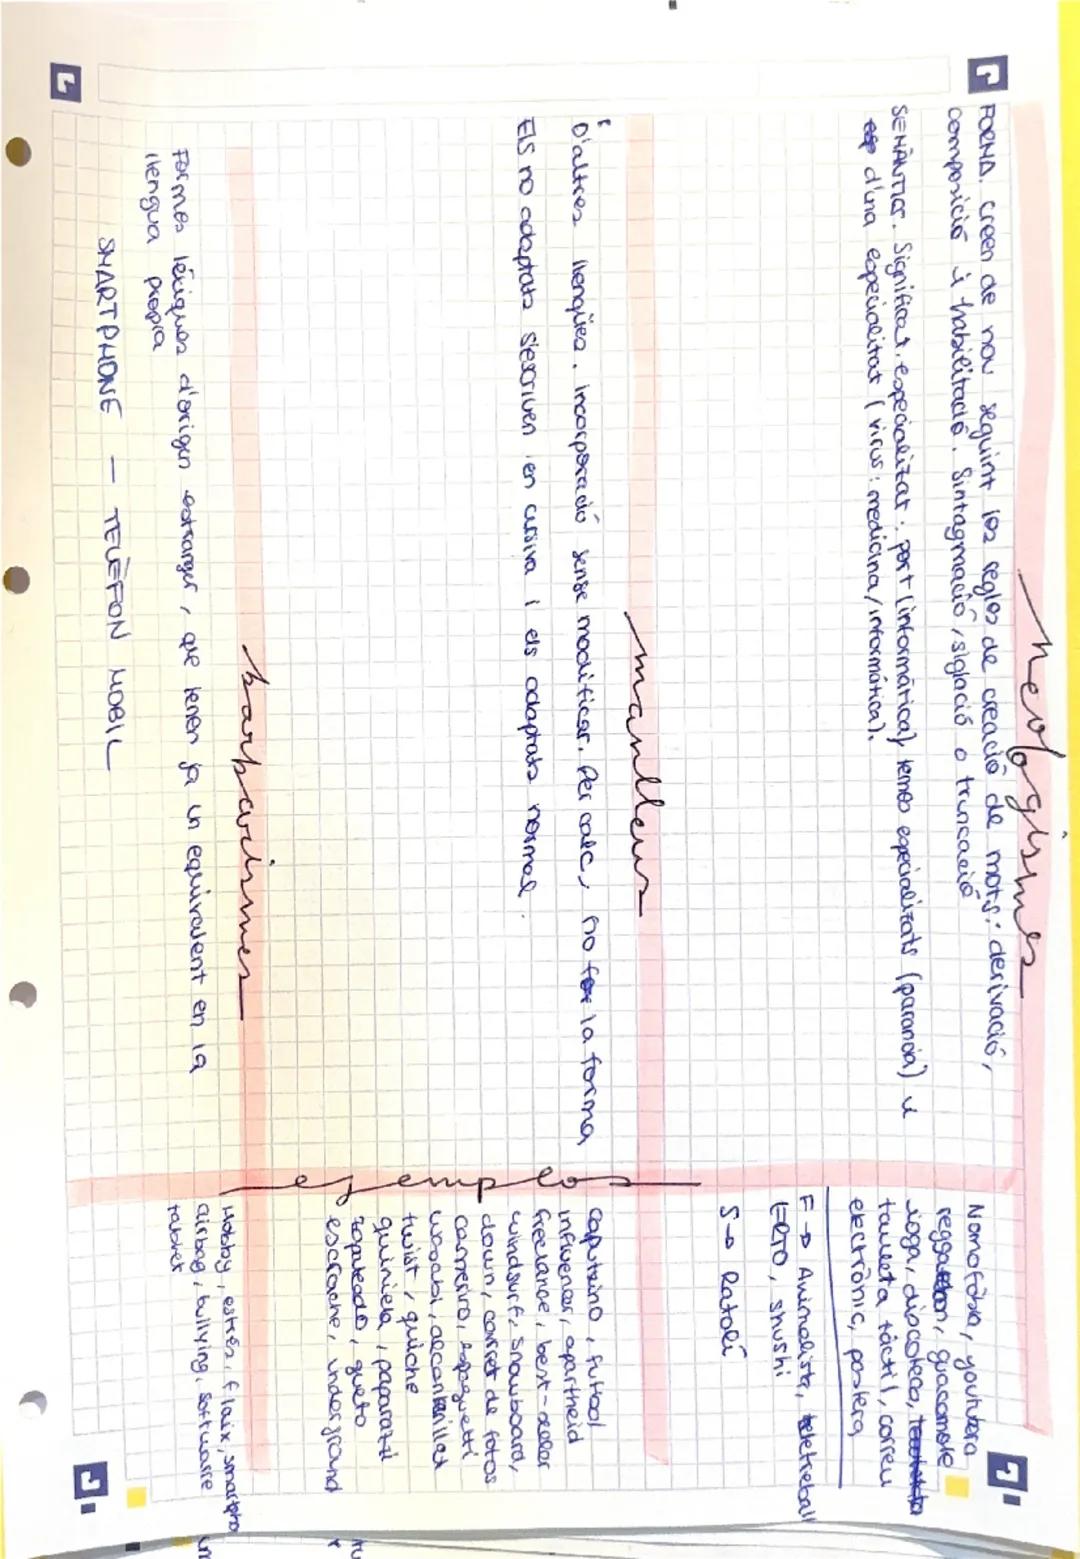 neologismes
FORMA. creen de nou seguint les regles de creació de mots: derivació,
composició i habilitació. Sintagmació, siglació o truncació
SEMÀNTICS. Significat especialitzat: port (informàtica) termes especialitzats (paranoia) i
d'una especialitat (virus: medicina/informàtica).
Nomofòbia, youtubera
reggaeton, guacamole
ioga, discoteca,
tauleta tàctil, correu
electrònic, postera
F → Animalista, teletreball
ERTO, shushi
S → Ratolí
manlleus
D'altres llengües. incorporació sense modificar. Per calc, no la forma
Els no adaptats s'escriven en cursiva i els adaptats normal.
ejemplos
Caputxino, futbol
influencer, apartheid
freelance, best-seller
windsurf, snowboard,
clown, carret de fotos
carreiro, espaguetti
wasabi, alcantarilla
twist, quiche
quiniela, paparazzi
zapateado, gueto
escrache, underground
barbarismes
Formes lèxiques d'origen estranger, que tenen ja un equivalent en la
llengua pròpia
SMARTPHONE — TELÈFON MOBIL
Hobby, estrés, flaix, smartpho
airbag, bullying, software
taburet